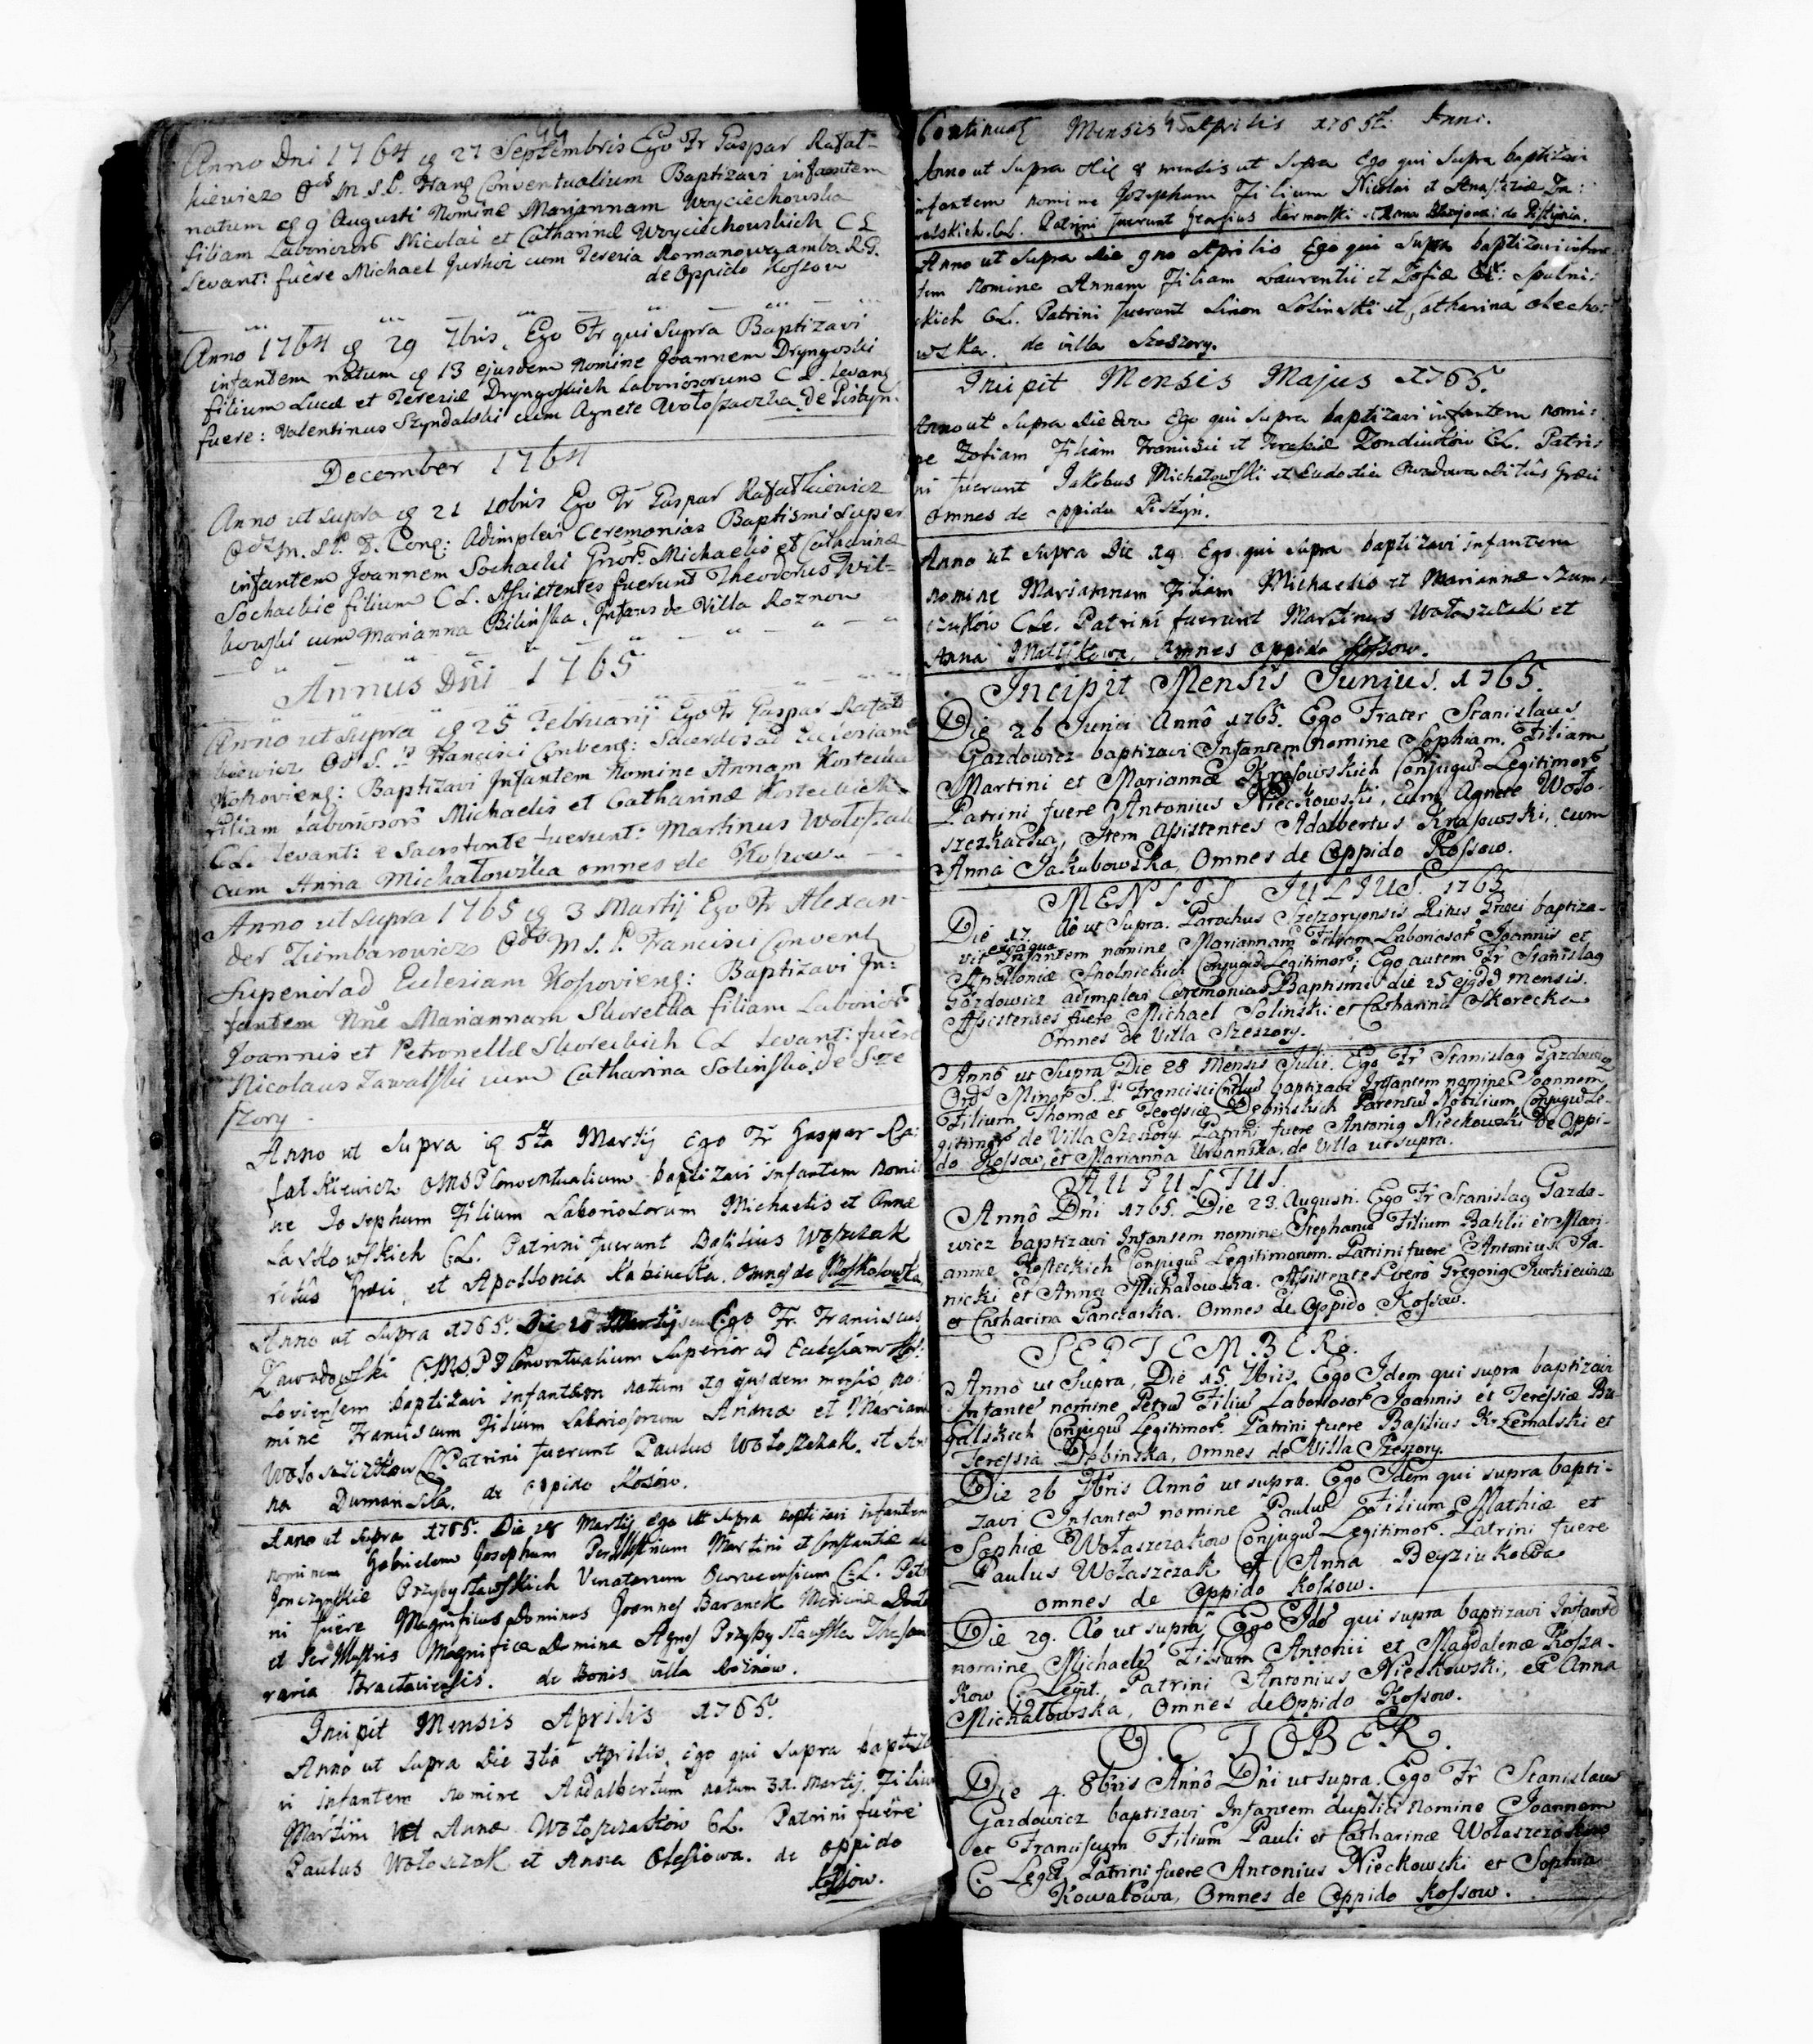 44
Anno Dni 1764 q 27 Septembris Ego Fr Gaspar Rafat-
kiewicz Ords M S.P. Franc Conventualium Baptizavi infantem
natum q 9 Augusti Nomine Mariannam Woyciechowska
filiam Laboriosors Nicolai et Catharinæ Woyciechowskich C L
Levant: fuêre Michael Jurkoi cum Teresia Romanowa ambo R.G.
de Oppido Kossow
Anno 1764 q 29 7bris, Ego Fr qui supra Baptizavi
infantem natum q 13 ejusdem Nomine Joannem Dryngoski
filium Lucæ et Teresiæ Dryngoskich Laboriosorum C L. Levant
fuere: Valentinus Szyndalski cum Agnete Wołoszaczka de Pistyn.
December 1764
Anno ut supra q 21 10bris Ego Fr Gaspar Rafałkiewicz
Ords M. S.P. F. Conv: Adimplevi Ceremonias Baptismi super
infantem Joannem Sochacki Michaelis et Catharinæ
Sochackie filium C L. Assistentes fuerunt Theodorus Wit-
kowski cum Marianna Bilinska. de Villa Roznow
Annus Dni 1765
Anno ut supra q 25 Februarij Ego Fr Gaspar Rafał
kiewicz Ords S. P. Francisci Convent: Sacerdos ad Ecclesiam
Kossoviens: Baptizavi Infantem Nomine Annam Kostecka
Filiam Laboriosors Michaelis et Catharinæ Kosteckich
C L. Levant: e Sacro fonte fuerunt: Martinus Wołoszak
cum Anna Michałowska omnes de Kossow.
Anno ut supra 1765 q 3 Martij Ego Fr Alexan-
der Ziembarowicz Ords M S. P. Francisci Convent
Superior ad Ecclesiam Kossoviens: Baptizavi In:
fantem Nne Mariannam Skorecka filiam Laborios
Joannis et Petronellæ Skoreckich C L Levant: fuêre
Nicolaus Zawalski cum Catharina Solinska de Sze
szory
Anno ut Supra q 5ta Martij Ego Fr Gaspar Ra:
fatkiewicz OMSP Conventualium baptizavi infantem nomi
ne Josephum Filium Laboriosorum Michaelis et Annæ
Laskowskich CL. Patrini fuerunt Basilius Woszczak
ritûs Græci, et Apollonia Omnes de
Anno ut Supra 1765. Die 28 Martij Ego Fr. Franciscus
Zawadowski OMSP Conventualium Superior ad Ecclesiam Kos:
soviensem baptizavi infantem natum 19 ejusdem mensis, no:
mine Franciscum Filium Laboriosorum et Mariannæ
Wołoszczakow CL Patrini fuerunt Paulus Wołoszczak. et An
na Dumanska. de oppido Kosów.
Anno ut Supra 1765. Die 28 Martij ego ut supra baptizavi infantem
nominem Gabrielem Josephum Perillustrium Martini et Constantiæ de
Przybysławskich Venatorum CL. Patri
ni fuêre Magnificus Dominus Joannes Baranek Medicinæ Doctor
et Perillustris Magnifica Domina Agnes Przybysławska Thesau
raria Braclaviensis. de Bonis villa Rożnow.
Incipit Mensis Aprilis 1765.
Anno ut Supra Die 3tia Aprilis, Ego qui supra baptiza
vi infantem nomine Addalbertum natum 31. Martij, Filium
Martini et Annæ Wołoszczaków CL. Patrini fuêre
Paulus Wołoszczak et Anna Olesiowa. de oppido
Kossow.
Continuat Mensis Aprilis 1765ti Anni. 45
Anno ut supra Die 8 mensis ut supra Ego qui supra baptizavi
infantem nomine Josephum Filium Nicolai et Anastasiæ Za:
walskich CL. Patrini fuerunt et Anna de Pistynia.
Anno ut supra Die 9no Aprilis Ego qui supra baptizavi infan:
tem nomine Annam Filiam Laurentii et Zofiæ Spulni:
ckich CL. Patrini fuerunt Simon Solinski et Catharina Olecho:
wska. de villa Szeszory.
Incipit Mensis Majus 1765.
Anno ut supra Die 2da Ego qui supra baptizavi infantem nomi:
ne Zofiam Filiam Francisci et Teresiæ CL. Patri:
ni fuerunt Jakobus Michałowski et Eudochia ritûs Græci
omnes de oppido Pistyn.
Anno ut supra Die 19 Ego qui supra baptizavi infantem
nomine Mariannam Filiam Michaelis et Mariannæ Szum:
czuków CL. Patrini fuerunt Martinus Wołoszczak et
Anna omnes oppido Kossow.
Incipit Mensis Junius. 1765.
Die 26 Junij Annô 1765. Ego Frater Stanislaus
Gazdowicz baptizavi Infantem nomine Sophiam, Filiam
Martini et Mariannæ Krasowskich Conjugũ Legitimors
Patrini fuere Antonius Nieckowski, cum Agnete Woło-
szczkacka, Item Assistentes Adalbertus Krasowski, cum
Anna Jakubowska, Omnes de Oppido Kossow.
MENSIS JULIUS. 1765
Die 17. Aô ut Supra. Parochus Szeszoryensis Ritus Græci baptiza-
vit ex aqua Infantem nomine Mariannam Filiam Laboriosor Joannis et
Apolloniæ Spolnickich Conjugũ Legitimor, Ego autem Fr Stanislaus
Gazdowicz adimplevi Ceremonias Baptismi die 25 ejusd mensis.
Assistentes fuere Michael Solinski et Catharina Skorecka
Omnes de Villa Szeszory.
Annô ut Supra Die 28 Mensis Julii. Ego Fr Stanislaus Gazdowicz
Ords Minor S. P. Francisci Cntlũ baptizavi Infantem nomine Joannem,
Filium Thomæ et Teressiæ Dębinskich Parentũ Nobilium Conjugũ Le-
gitimor de Villa Szeszory. Patrini fuere Antonius Nieckowski de Oppi-
do Kossow, et Marianna Urbanska, de Villa ut supra.
AUGUSTUS.
Annô Dni 1765. Die 23. Augusti. Ego Fr Stanislaus Gazdo-
wicz baptizavi Infantem nomine Stephanũ Filium Basilii et Mari-
annæ Kosteckich Conjugũ Legitimorum. Patrini fuere Antonius Ja-
nicki et Anna Michałowska. Assistentes verô Gregorius Jurkiewicz
et Catharina Panczarska. Omnes de Oppido Kossow.
SEPTEMBER.
Annô ut Supra, Die 15. 7bris. Ego Idem qui supra baptizavi
Infantẽ nomine Petrũ Filiũ Laboriosor Joannis et Teressiæ Bu-
galskich Conjugũ Legitimor. Patrini fuere Basilius Krzemalski et
Teressia Dębinska, Omnes de Villa Szeszory.
Die 26 7bris Annô ut supra. Ego Idem qui supra bapti-
zavi Infantẽ nomine Paulũ Filium Mathiæ et
Sophiæ Wołaszczakow Conjugũ Legitimor. Patrini fuere
Paulus Wołaszczak et Anna Deyziukowa
omnes de Oppido Kossow.
Die 29. Aô ut supra Ego Idẽ qui supra baptizavi Infantẽ
nomine Michaelẽ Filium Antonii et Magdalenæ Kosza-
kow C. Legit. Patrini Antonius Nieckowski, et Anna
Michałowska, Omnes de Oppido Kossow.
OCTOBER.
Die 4. 8bris Annô Dni ut supra. Ego Fr Stanislaus
Gazdowicz baptizavi Infantem duplici nomine Joannem
et Franciscum Filium Pauli et Catharinæ Wołaszczakow
C. Legit. Patrini fuere Antonius Nieckowski et Sophia
Kowalowa, Omnes de Oppido Kossow.